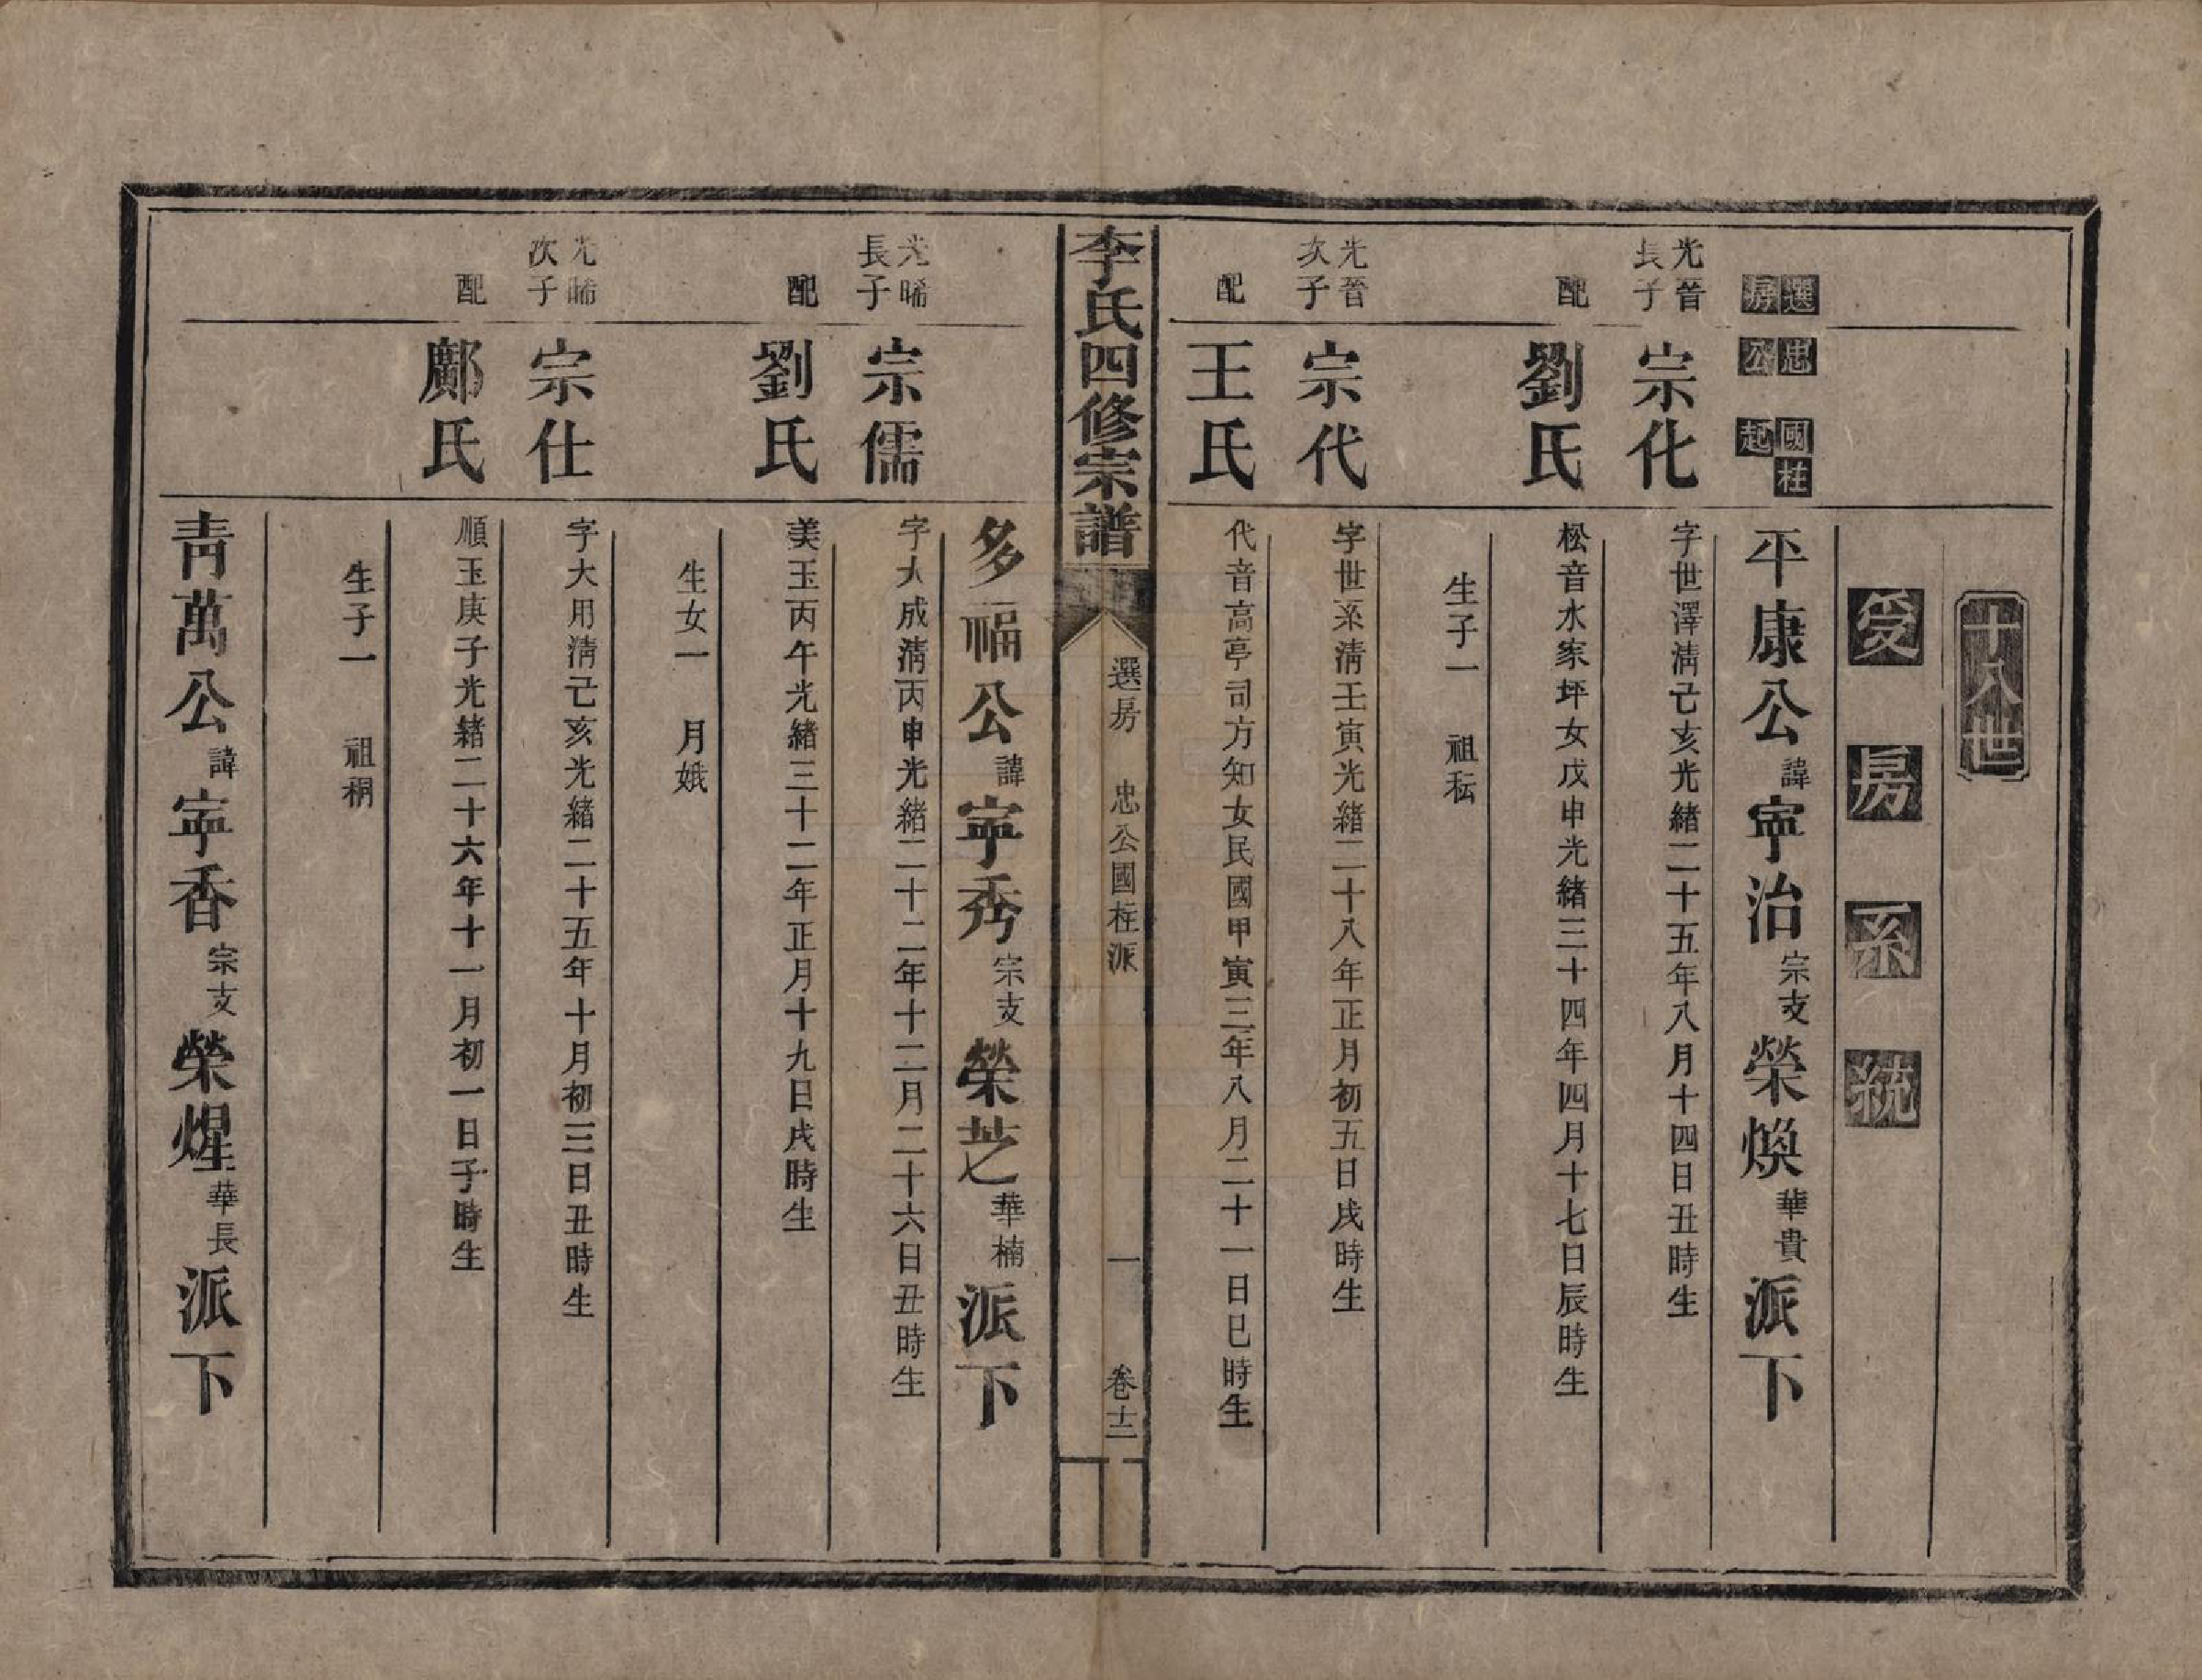 十八世
爰房系統
選房
忠公
國柱起
平康公諱寧治宗支榮煥華貴派下
光晉長子
宗化
字世澤清己亥光緒二十五年八月十四日丑時生
配
劉氏
松音水家坪女戊申光緒三十四年四月十七日辰時生
生子一 祖秐
光晉次子
宗代
字世系清壬寅光緒二十八年正月初五日戌時生
配
王氏
代音高亭司方知女民國甲寅三年八月二十一日巳時生
李氏四修宗譜
選房 忠公國柱派 一 卷十二
多福公諱寧秀宗支榮芝華楠派下
光晞長子
宗儒
字大成清丙申光緒二十二年十二月二十六日丑時生
配
劉氏
美玉丙午光緒三十二年正月十九日戌時生
生女一 月娥
光晞次子
宗仕
字大用清己亥光緒二十五年十月初三日丑時生
配
鄺氏
順玉庚子光緒二十六年十一月初一日子時生
生子一 祖稝
青萬公諱寧香宗支榮煋華長派下